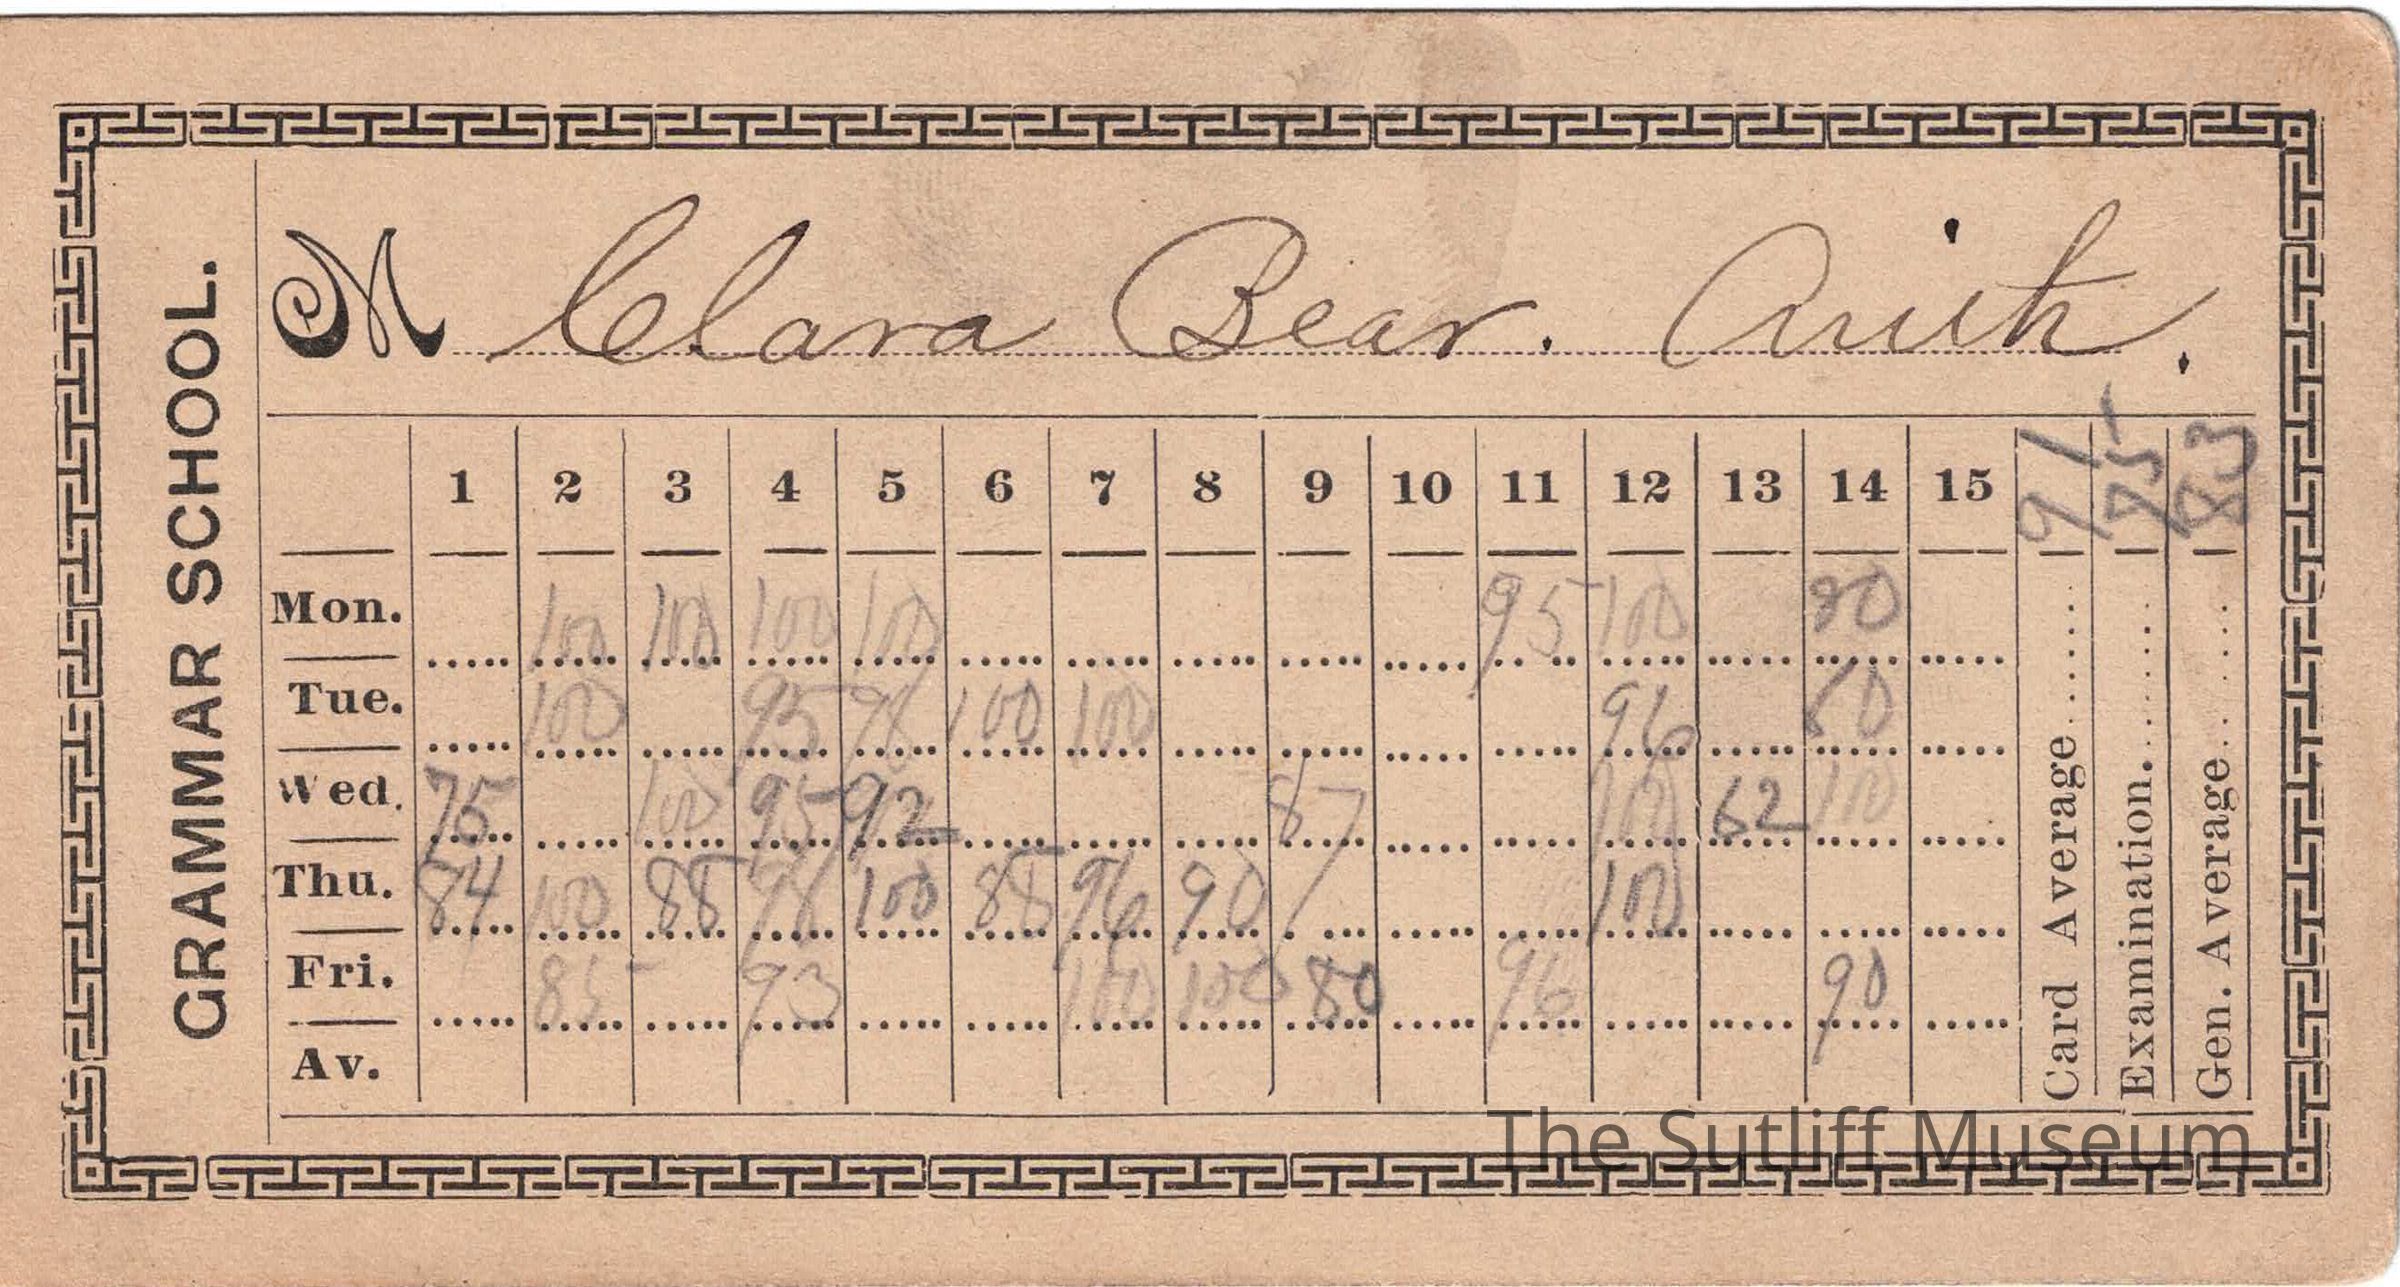 GRAMMAR SCHOOL.
M Clara Bear. Arith.
1 2 3 4 5 6 7 8 9 10 11 12 13 14 15 91 83
Mon. 100 100 100 100 95 100 80
Tue. 100 95 98 100 100 96 80
Wed. 75 100 95 92 87 100 62 100
Thu. 84 100 88 98 100 88 96 90 100
Fri. 85 93 100 100 80 96 90
Av.
Card Average
Examination
Gen. Average
The Sutliff Museum